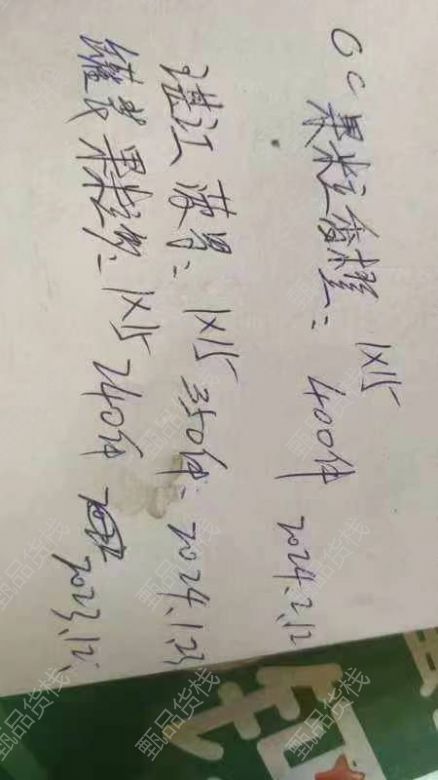 CC果粒香橙: 1X15 400件 2024.2.12
湛江菠萝: 1X15 350件: 2024.1.23
维 果粒 : 1X15 240件 2023.12.
甄品货栈